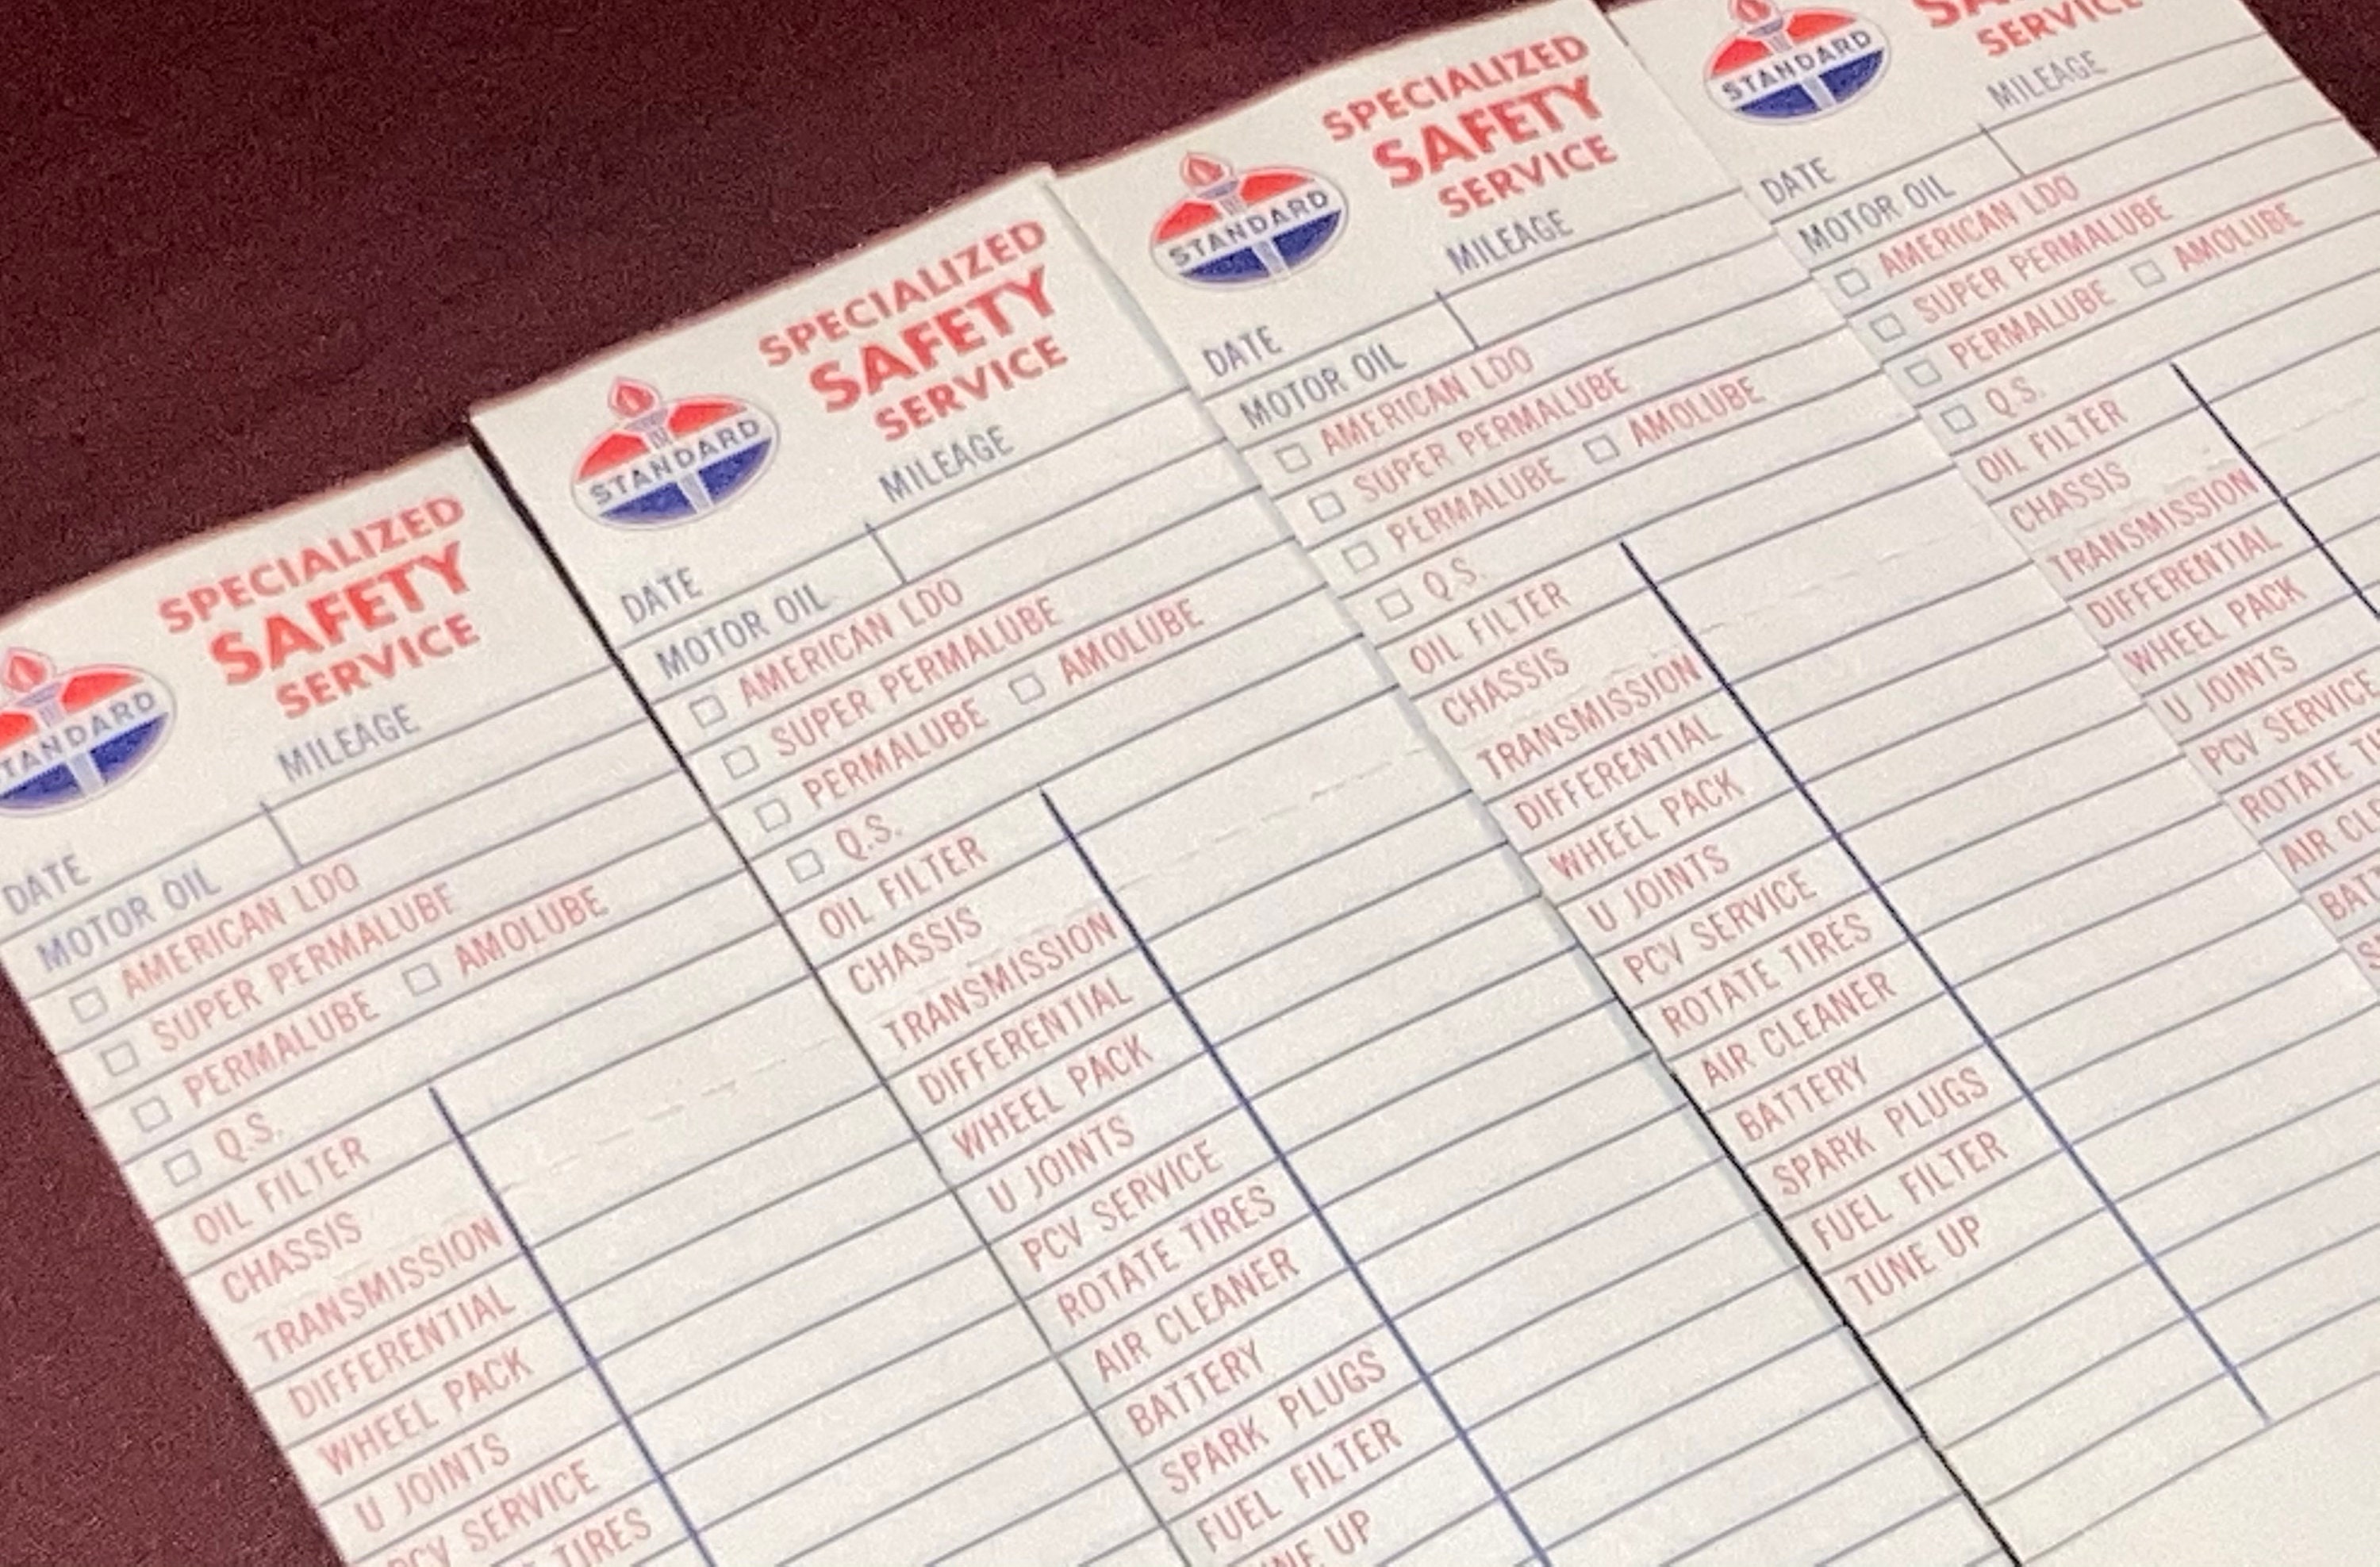 SPECIALIZED
SAFETY
SERVICE
TANDARD
MILEAGE
DATE
MOTOR OIL
AMERICAN LDO
SUPER PERMALUBE
PERMALUBE AMOLUBE
Q.S.
OIL FILTER
CHASSIS
TRANSMISSION
DIFFERENTIAL
WHEEL PACK
U JOINTS
PCV SERVICE
TIRES
SPECIALIZED
SAFETY
SERVICE
STANDARD
MILEAGE
DATE
MOTOR OIL
AMERICAN LDO
SUPER PERMALUBE
PERMALUBE AMOLUBE
Q.S.
OIL FILTER
CHASSIS
TRANSMISSION
DIFFERENTIAL
WHEEL PACK
U JOINTS
PCV SERVICE
ROTATE TIRES
AIR CLEANER
BATTERY
SPARK PLUGS
FUEL FILTER
UP
SPECIALIZED
SAFETY
SERVICE
STANDARD
MILEAGE
DATE
MOTOR OIL
AMERICAN LDO
SUPER PERMALUBE
PERMALUBE AMOLUBE
Q.S.
OIL FILTER
CHASSIS
TRANSMISSION
DIFFERENTIAL
WHEEL PACK
U JOINTS
PCV SERVICE
ROTATE TIRES
AIR CLEANER
BATTERY
SPARK PLUGS
FUEL FILTER
TUNE UP
SERVICE
STANDARD
MILEAGE
DATE
MOTOR OIL
AMERICAN LDO
SUPER PERMALUBE
PERMALUBE AMOLUBE
Q.S.
OIL FILTER
CHASSIS
TRANSMISSION
DIFFERENTIAL
WHEEL PACK
U JOINTS
PCV SERVICE
ROTATE
AIR